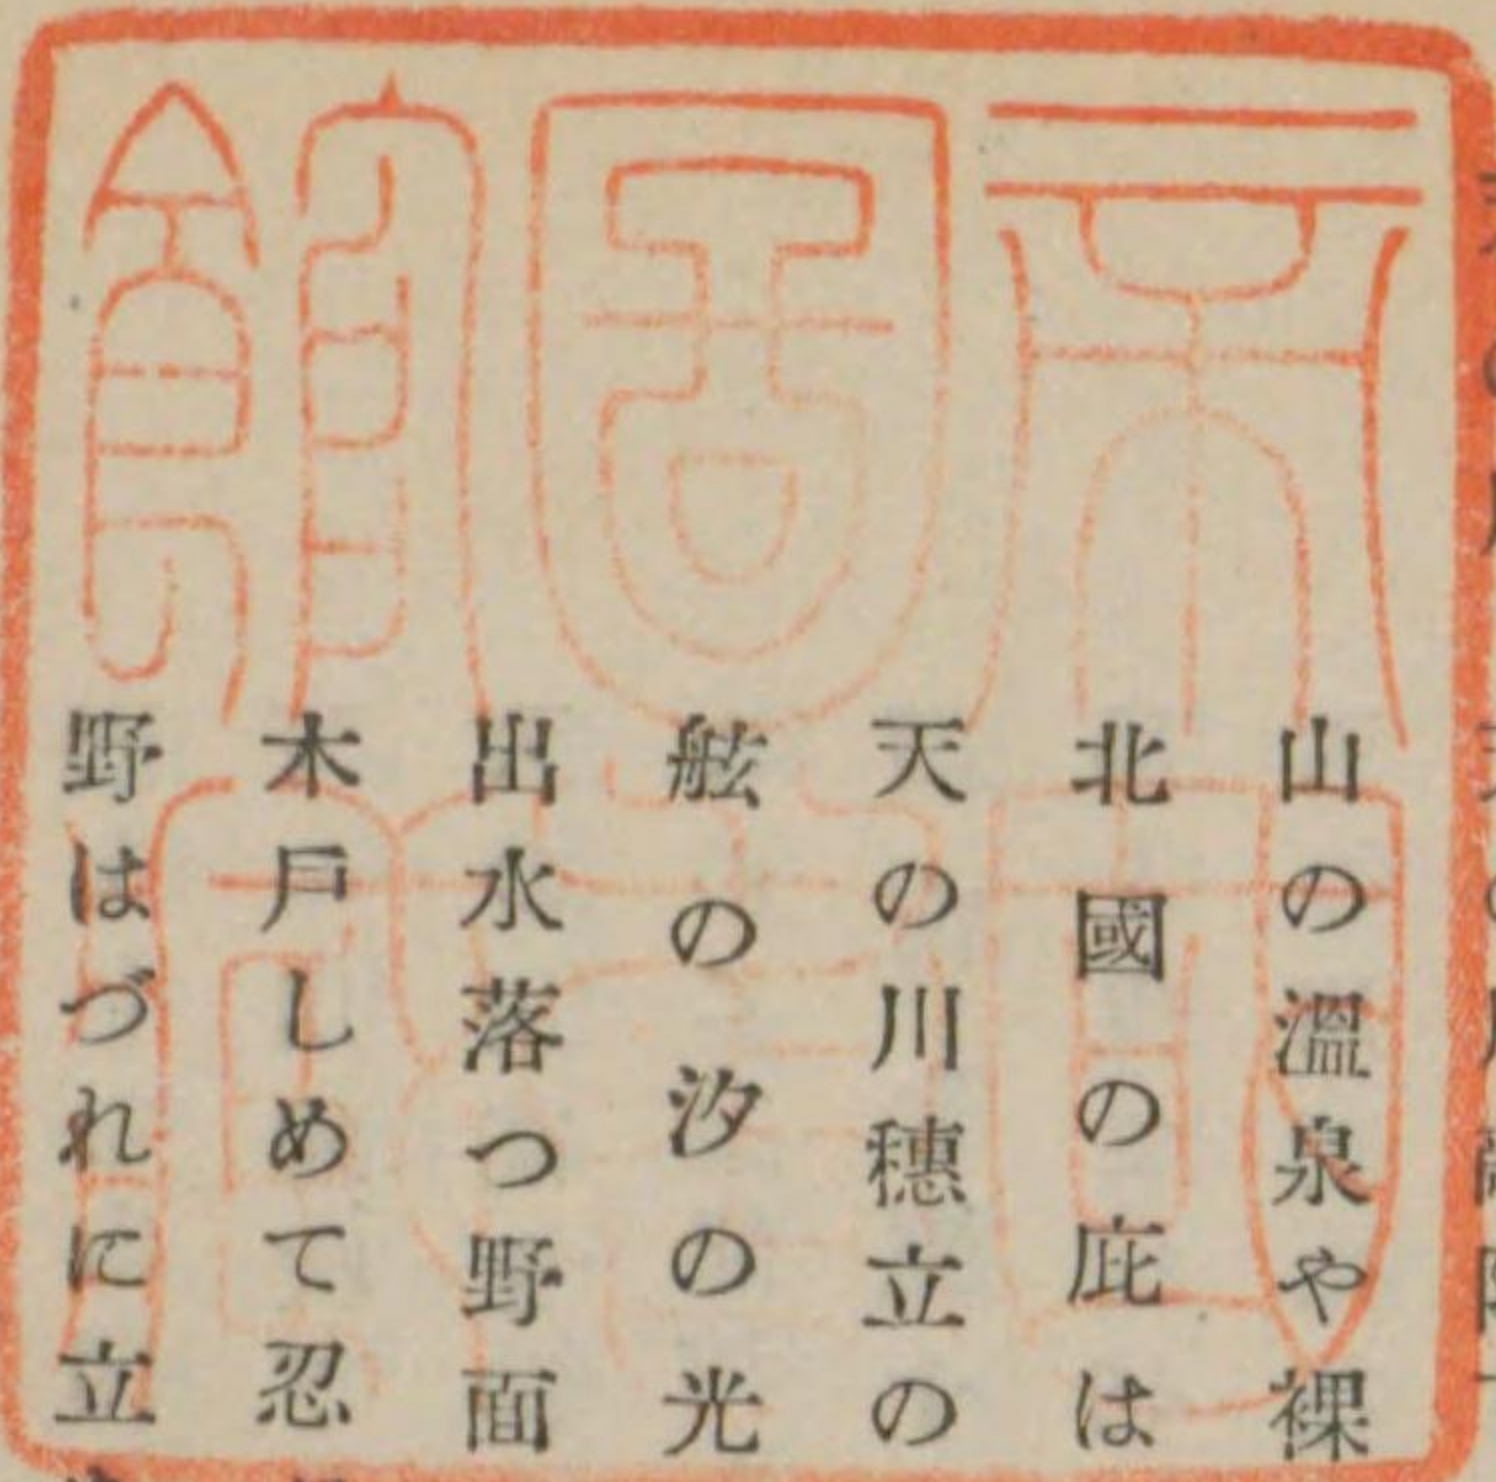 山の溫泉や裸
北國の庇は
天の川穗立の
舷の汐の光
出水落つ野面
木戶しめて忍
野はづれに立
帝圖館